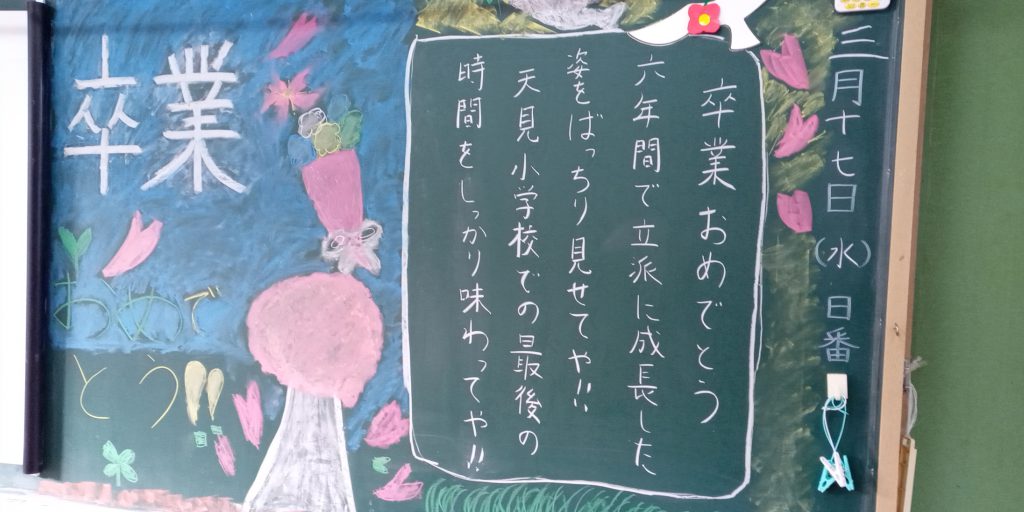 三月十七日(水)日番
卒業おめでとう
六年間で立派に成長した
姿をばっちり見せてや!!
天見小学校での最後の
時間をしっかり味わってや!!
卒業
おめで
とう!!